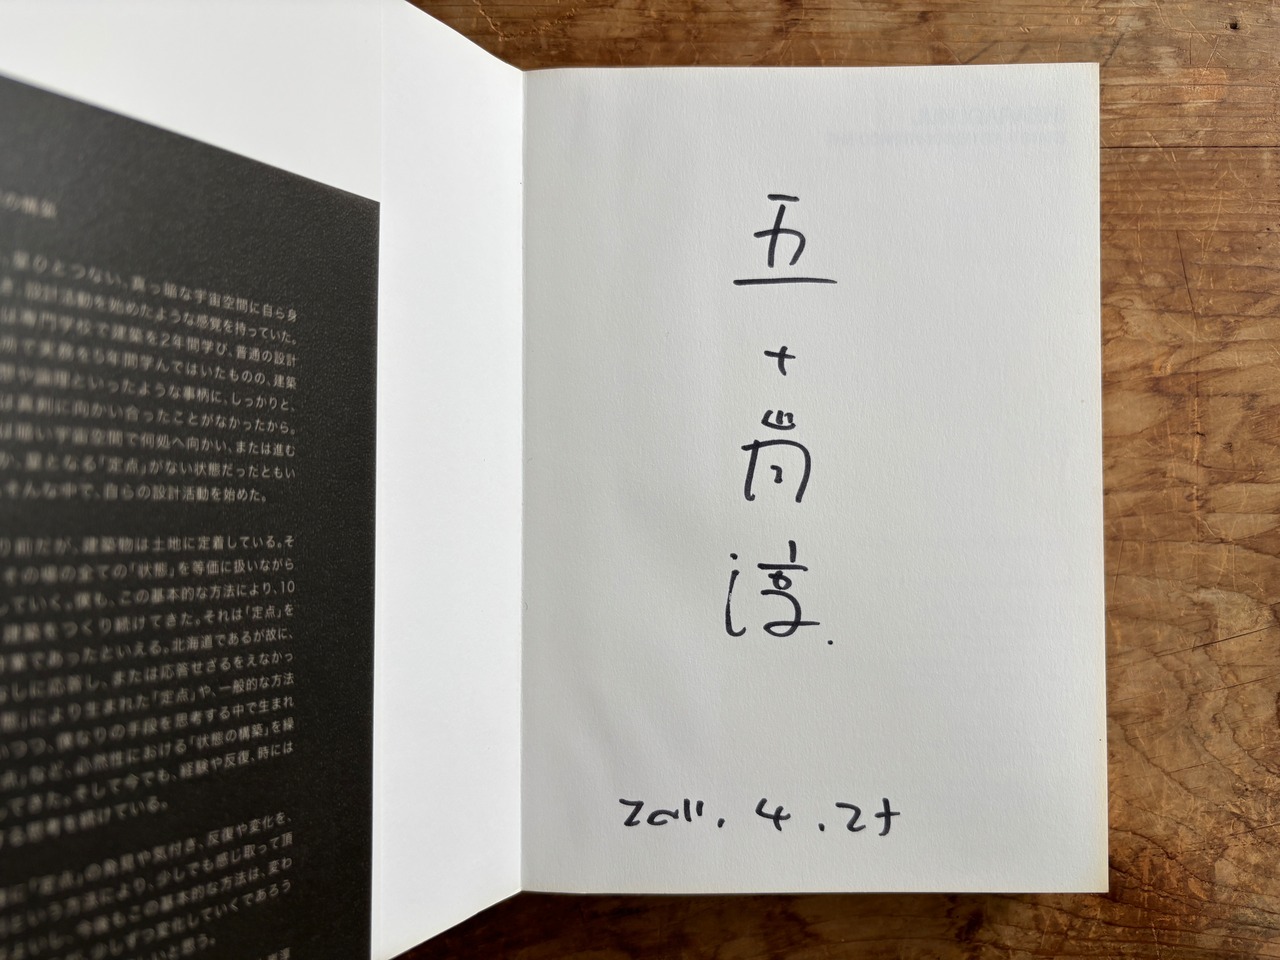 の構築
、星ひとつない、真っ暗な宇宙空間に自ら身
設計活動を始めたような感覚を持っていた。
は専門学校で建築を2年間学び、普通の設計
所で実務を5年間学んではいたものの、建築
論理といったような事柄に、しっかりと、
は真剣に向かい合ったことがなかったから。
は暗い宇宙空間で何処へ向かい、または進む
か、星となる「定点」がない状態だったともい
そんな中で、自らの設計活動を始めた。
り前だが、建築物は土地に定着している。そ
その場の全ての「状態」を等価に扱いながら
していく。僕も、この基本的な方法により、10
建築をつくり続けてきた。それは「定点」を
業であったといえる。北海道であるが故に、
なしに応答し、または応答せざるをえなかっ
態」により生まれた「定点」や、一般的な方法
いつつ、僕なりの手段を思考する中で生まれ
点」など、必然性における「状態の構築」を繰
ってきた。そして今でも、経験や反復、時には
る思考を続けている。
に「定点」の発見や気付き、反復や変化を、
という方法により、少しでも感じ取って頂
よいし、今後もこの基本的な方法は、変わ
少しずつ変化していくであろう
いと思う。
五十嵐淳.
2011. 4.